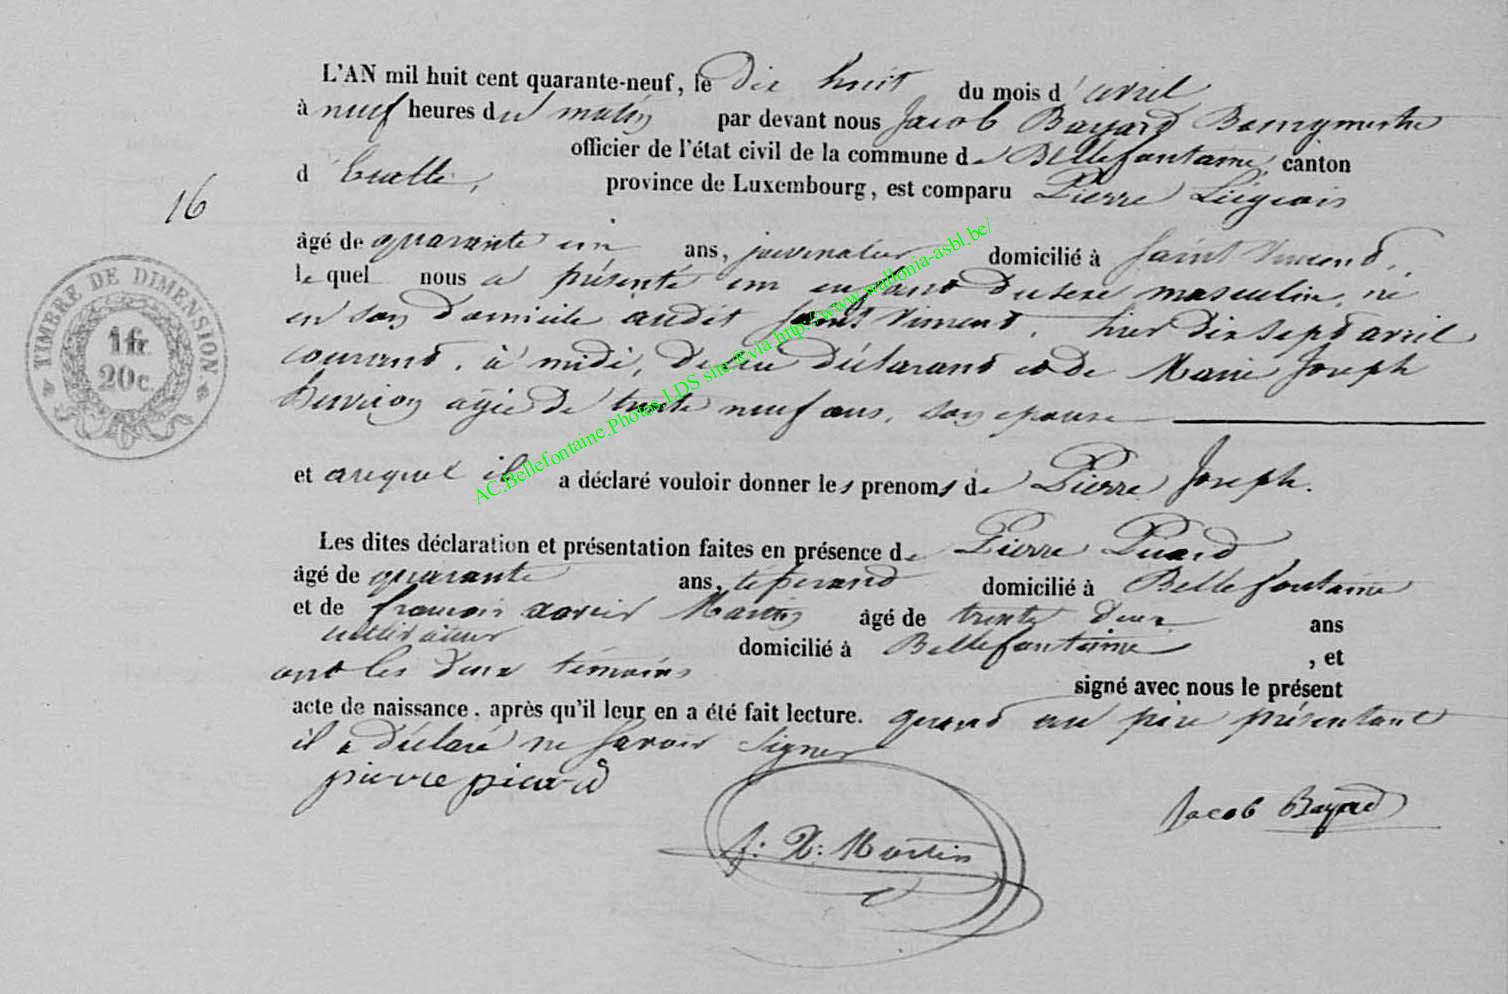 L'AN mil huit cent quarante-neuf, le dix huit du mois d'avril
à neuf heures du matin par devant nous Jacob Bayard Bourgmestre
officier de l'état civil de la commune de Bellefontaine, canton
d'Etalle, province de Luxembourg, est comparu Pierre Liégeois
16
âgé de quarante un ans, journalier domicilié à Saint Vincent,
le quel nous a présenté un enfant du sexe masculin, né
en son domicile audit Saint Vincent, hier dix sept avril
courant, à midi, de lui déclarant et de Marie Joseph
âgée de trente neuf ans, son épouse
et auquel il a déclaré vouloir donner les prenoms de Pierre Joseph.
Les dites déclaration et présentation faites en présence de Pierre Picard
âgé de quarante ans, domicilié à Bellefontaine
et de françois xavier Martin âgé de trente deux ans
cultivateur domicilié à Bellefontaine, et
ont les deux témoins signé avec nous le présent
acte de naissance, après qu'il leur en a été fait lecture. quand au père présentant
il a déclaré ne savoir signer
pierre picard
f: X: Martin
Jacob Bayard
TIMBRE DE DIMENSION
1 fr.
20 c.
AC.Bellefontaine.Photos LDS site.fr via http://www.wallonia-asbl.be/